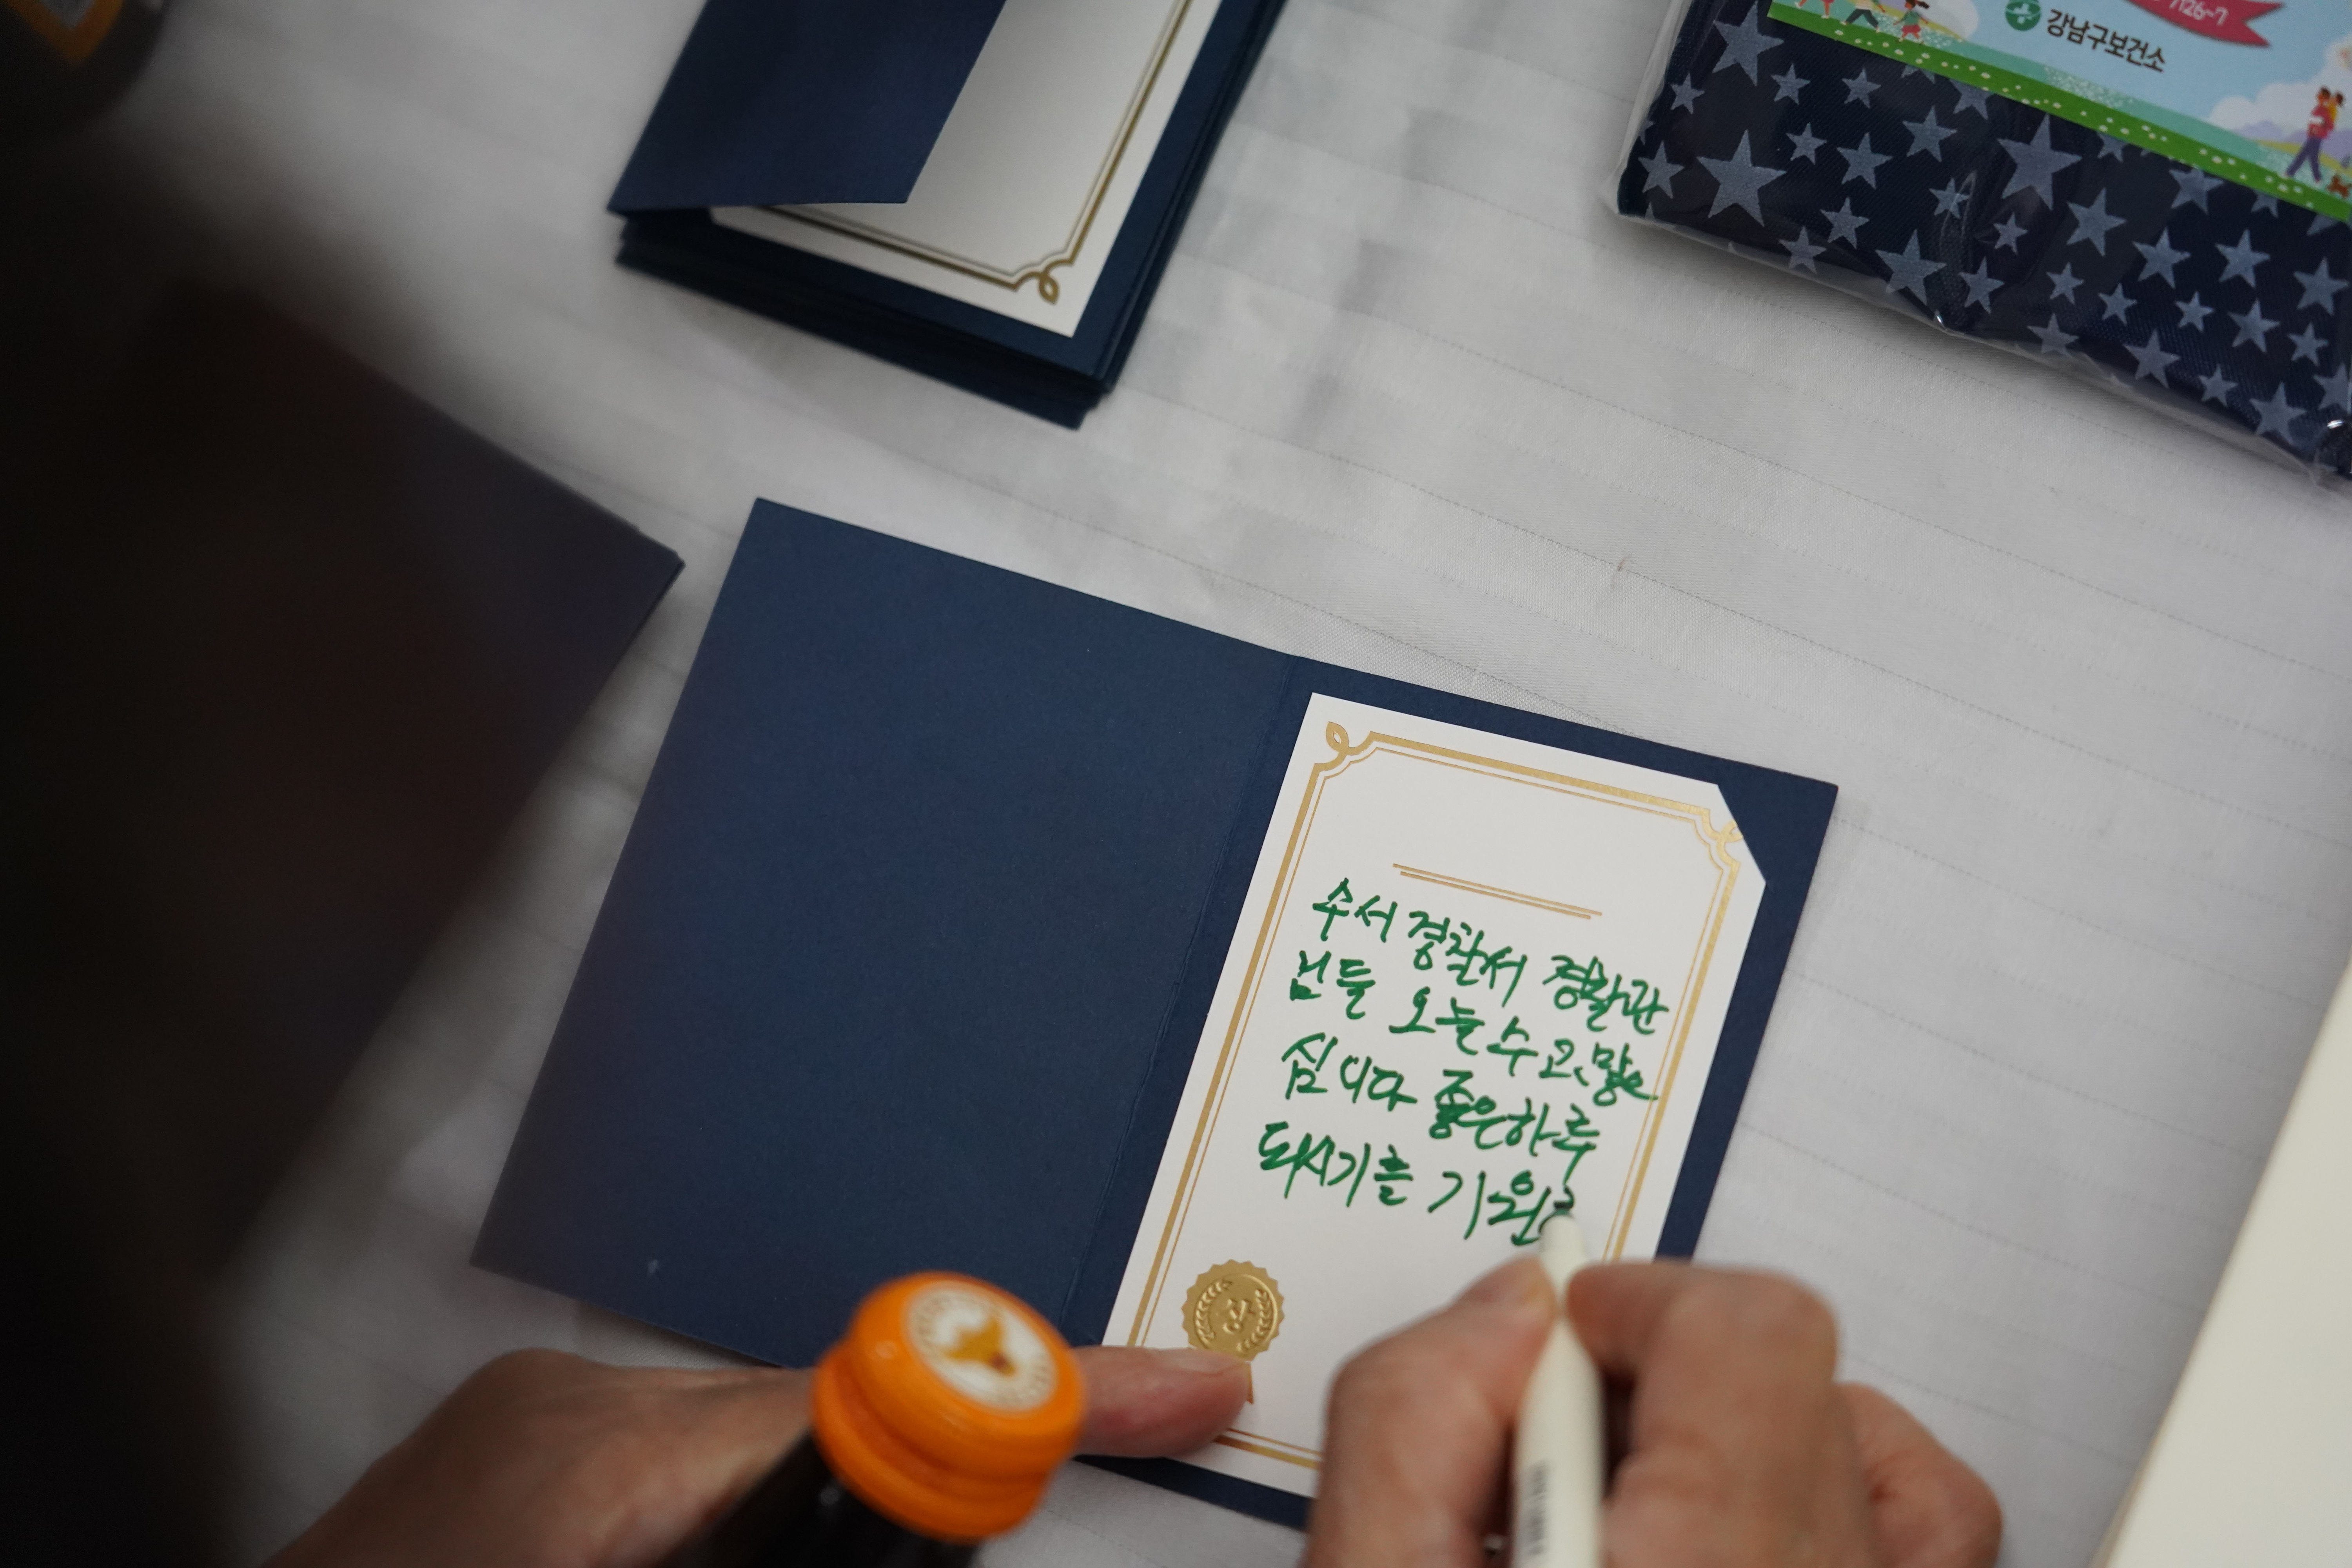 강남구보건소
수서 경찰서 경찰관
님들 오늘 수고 많으
십니다 좋은하루
되시기를 기원